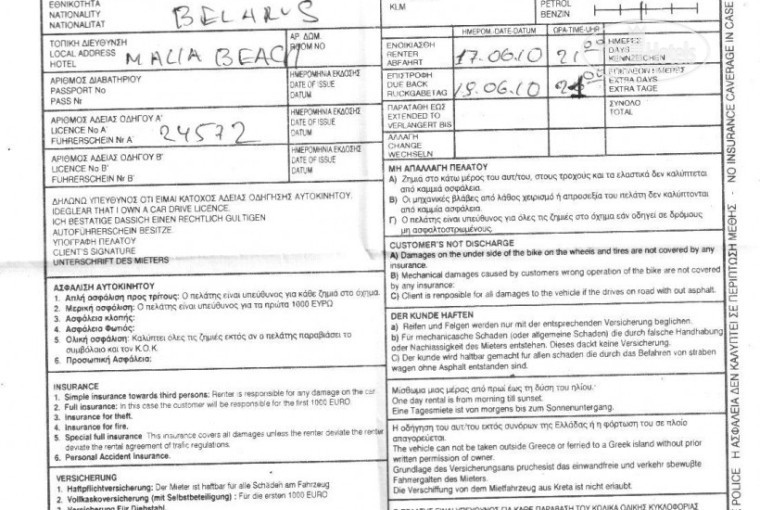 ΕΘΝΙΚΟΤΗΤΑ
NATIONALITY
NATIONALITAT
BELARUS
ΤΟΠΙΚΗ ΔΙΕΥΘΥΝΣΗ
LOCAL ADDRESS
HOTEL
MALIA BEACH
ΑΡ. ΔΩΜ.
ROOM NO
ΑΡΙΘΜΟΣ ΔΙΑΒΑΤΗΡΙΟΥ
PASSPORT No
PASS Nr
ΗΜΕΡΟΜΗΝΙΑ ΕΚΔΟΣΗΣ
DATE OF ISSUE
DATUM
ΑΡΙΘΜΟΣ ΑΔΕΙΑΣ ΟΔΗΓΟΥ Α'
LICENCE No A'
FÜHRERSCHEIN Nr A'
24572
ΗΜΕΡΟΜΗΝΙΑ ΕΚΔΟΣΗΣ
DATE OF ISSUE
DATUM
ΑΡΙΘΜΟΣ ΑΔΕΙΑΣ ΟΔΗΓΟΥ Β'
LICENCE No B'
FÜHRERSCHEIN Nr B'
ΗΜΕΡΟΜΗΝΙΑ ΕΚΔΟΣΗΣ
DATE OF ISSUE
DATUM
ΔΗΛΩΝΩ ΥΠΕΥΘΥΝΟΣ ΟΤΙ ΕΙΜΑΙ ΚΑΤΟΧΟΣ ΑΔΕΙΑΣ ΟΔΗΓΗΣΗΣ ΑΥΤΟΚΙΝΗΤΟΥ.
IDEGLEAR THAT I OWN A CAR DRIVE LICENCE.
ICH BESTATIGE DASSICH EINEN RECHTLICH GULTIGEN
AUTOFÜHRERSCHEIN BESITZE
ΥΠΟΓΡΑΦΗ ΠΕΛΑΤΟΥ
CLIENT'S SIGNATURE
UNTERSCHRIFT DES MIETERS
ΑΣΦΑΛΙΣΗ ΑΥΤΟΚΙΝΗΤΟΥ
1. Απλή ασφάλιση προς τρίτους: Ο πελάτης είναι υπεύθυνος για κάθε ζημιά στο όχημα.
2. Μερική ασφάλιση: Ο πελάτης είναι υπεύθυνος για τα πρώτα 1000 ΕΥΡΩ
3. Ασφάλεια κλοπής:
4. Ασφάλεια Φωτιός:
5. Ολική ασφάλιση: Καλύπτει όλες τις ζημιές εκτός αν ο πελάτης παραβιάσει το
συμβόλαιο και τον Κ.Ο.Κ.
6. Προσωπική Ασφάλεια:
INSURANCE
1. Simple insurance towards third persons: Renter is responsible for any damage on the car
2. Full insurance: in this case the customer will be responsible for the first 1000 EURO
3. Insurance for theft.
4. Insurance for fire.
5. Special full insurance This insurance covers all damages unless the renter deviate the renter
deviate the rental agreement of trafic regulations.
6. Personal Accident Insurance.
VERSICHERUNG
1. Haftpflichtversicherung: Der Mieter ist haftbar für alle Schäden am Fahrzeug
2. Vollkaskoversicherung (mit Selbstbeteiligung) : Für die ersten 1000 EURO
KLM
PETROL
BENZIN
ΗΜΕΡΟΜ.-DATE-DATUM
ΩΡΑ-TIME-UHR
ΕΝΟΙΚΙΑΣΘΗ
RENTER
ABFAHRT
17.06.10
21 00
ΗΜΕΡΕΣ
DAYS
KENNZEICHEN
ΕΠΙΣΤΡΟΦΗ
DUE BACK
RUCKGABETAG
EXTRA DAYS
EXTRA TAGE
ΠΑΡΑΤΑΘΗ ΕΩΣ
EXTENDED TO
VERLANGERT BIS
ΣΥΝΟΛΟ
TOTAL
ΑΛΛΑΓΗ
CHANGE
WECHSELN
ΜΗ ΑΠΑΛΛΑΓΗ ΠΕΛΑΤΟΥ
Α) Ζημια στο κάτω μέρος του αυτ/του, στους τροχούς και τα ελαστικά δεν καλύπτεται
από καμμιά ασφάλεια.
Β) Οι μηχανικές βλάβες από λάθος χειρισμό ή απροσεξία του πελάτη δεν καλύπτονται
από καμμιά ασφάλεια.
Γ) Ο πελάτης είναι υπεύθυνος για όλες τις ζημιές στο όχημα εάν οδηγεί σε δρόμους
μη ασφαλτοστρωμένους.
CUSTOMER'S NOT DISCHARGE
A) Damages on the under side of the bike on the wheels and tires are not covered by any
insurance.
B) Mechanical damages caused by customers wrong operation of the bike are not covered
by any insurance:
C) Client is renponsible for all damages to the vehicle if the drives on road with out asphalt.
DER KUNDE HAFTEN
a) Reifen und Felgen werden nur mit der entsprechenden Versicherung beglichen.
b) Für mechanicasche Schaden (oder allgemeine Schaden) die durch falsche Handhabung
oder Nachlassigkeit des Mieters entstehen. Dieses dackt keine Versicherung.
C) Der kunde wird haftbar gemacht fur allen schaden die durch das Befahren von straben
wagen ohne Asphalt entstanden sind.
Μίσθωμα μιας μέρας από πρωί έως τη δύση του ηλίου.
One day rental is from morning till sunset.
Eine Tagesmiete ist von morgens bis zum Sonnenuntergang.
Η οδήγηση του αυτ/του εκτός συνόρων της Ελλάδας ή η φόρτωση του σε πλοίο
απαγορεύεται.
The vehicle can not be taken outside Greece or ferried to a Greek island without prior
written permission of owner.
Grundlage des Versicherungsans pruchesist das einwandfreie und verkehr sbewußte
Fahrergalten des Mieters.
Die Verschiffung von dem Mietfahrzeug aus Kreta ist nicht erlaubt.
POLICE Η ΑΣΦΑΛΕΙΑ ΔΕΝ ΚΑΛΥΠΤΕΙ ΣΕ ΠΕΡΙΠΤΩΣΗ ΜΕΘΗΣ - NO INSURANCE CAVERAGE IN CASE